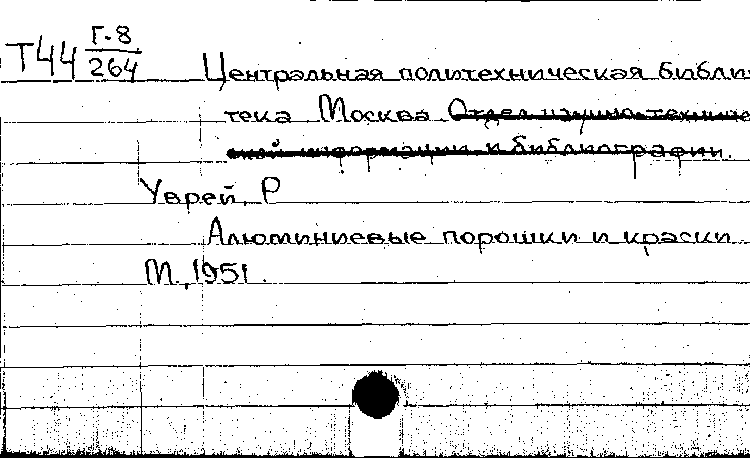 Т44 Г-8/264
Центральная политехническая библи
тека Москва Отдел научно-техниче
ской информации и библиографии.
Уврей, Р
Алюминиевые порошки и краски
М., 1951.